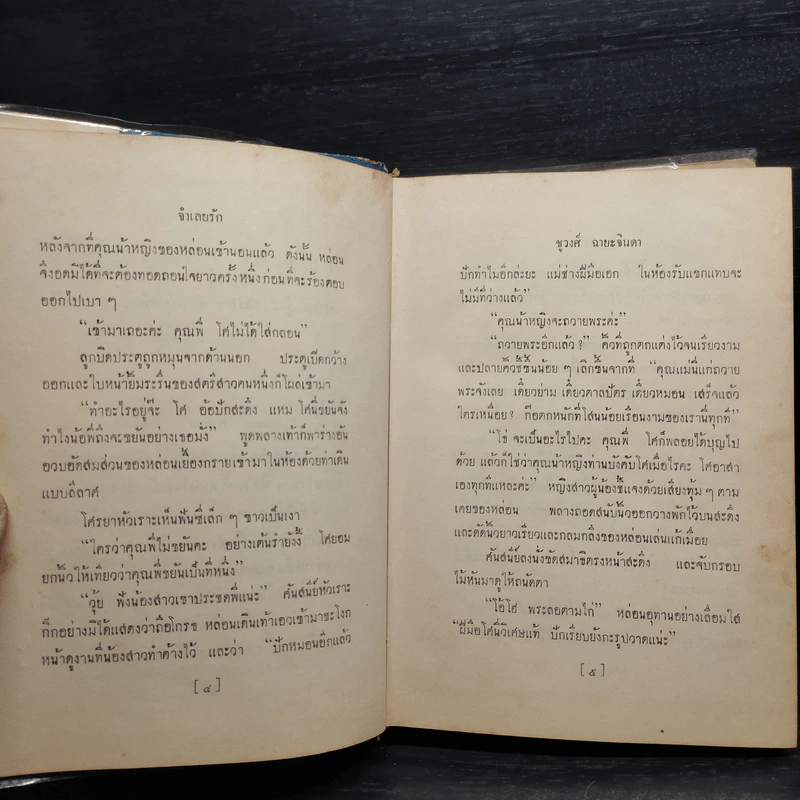 จำเลยรัก
หลังจากที่คุณน้าหญิงของหล่อนเข้านอนแล้ว ดังนั้น หล่อน
จึงอดมิได้ที่จะต้องทอดถอนใจยาวครั้งหนึ่งก่อนที่จะร้องตอบ
ออกไปเบา ๆ
“เข้ามาเถอะค่ะ คุณพี่ โศไม่ได้ใส่กลอน”
ลูกบิดประตูถูกหมุนจากด้านนอก ประตูเปิดกว้าง
ออกและใบหน้ายิ้มระรื่นของสตรีสาวคนหนึ่งก็โผล่เข้ามา
“ทำอะไรอยู่จ๊ะ โศ อ้อปักสะดึง แหม โศนี่ขยันจัง
ทำไงน้อพี่ถึงจะขยันอย่างเธอมั่ง” พูดพลางเท้าก็พาร่างอัน
อวบอัดสมส่วนของหล่อนเยื้องกรายเข้ามาในห้องด้วยท่าเดิน
แบบลีลาศ
โศรยาหัวเราะเห็นฟันซี่เล็ก ๆ ขาวเป็นเงา
“ใครว่าคุณพี่ไม่ขยันคะ อย่างเต้นรำยังงี้ โศยอม
ยกนิ้วให้เทียวว่าคุณพี่ขยันเป็นที่หนึ่ง”
“วุ้ย ฟังน้องสาวเขาประชดพี่แน่ะ” ศันสนีย์หัวเราะ
กิ๊กอย่างมิได้แสดงว่าถือโกรธ หล่อนเดินเท้าเอวเข้ามาชะโงก
หน้าดูงานที่น้องสาวทำค้างไว้ และว่า “ปักหมอนอีกแล้ว
[ ๔ ]
ชูวงศ์ ฉายะจินดา
ปักทำไมอีกล่ะยะ แม่ช่างฝีมือเอก ในห้องรับแขกแทบจะ
ไม่มีที่วางแล้ว”
“คุณน้าหญิงจะถวายพระค่ะ”
“ถวายพระอีกแล้ว?” คิ้วที่ถูกตกแต่งไว้จนเรียวงาม
และปลายควัชขึ้นน้อย ๆ เลิกขึ้นจากที่ “คุณแม่นี่แก่ถวาย
พระจังเลย เดี๋ยวย่าม เดี๋ยวตาลปัตร เดี๋ยวหมอน เสร็จแล้ว
ใครเหนื่อย? ก๊อตกหนักที่โสนน้อยเรือนงามของเรานี่ทุกที”
“โธ่ จะเป็นอะไรไปคะ คุณพี่ โศก็พลอยได้บุญไป
ด้วย แล้วก็ใช่ว่าคุณน้าหญิงท่านบังคับโศเมื่อไรคะ โศอาสา
เองทุกทีแหละค่ะ” หญิงสาวผู้น้องชี้แจงด้วยเสียงทุ้ม ๆ ตาม
เคยของหล่อน พลางถอดสนับนิ้วออกวางพักไว้บนสะดึง
และดัดนิ้วยาวเรียวและกลมกลึงของหล่อนเล่นแก้เมื่อย
ศันสนีย์ลงนั่งขัดสมาธิตรงหน้าสะดึง และจับกรอบ
ไม้หันมาดูให้ถนัดตา
“โอ้โฮ พระลอตามไก่” หล่อนอุทานอย่างเลื่อมใส
“ฝีมือโศนี่วิเศษแท้ ปักเรียบยังกะรูปวาดแน่ะ”
[ ๕ ]